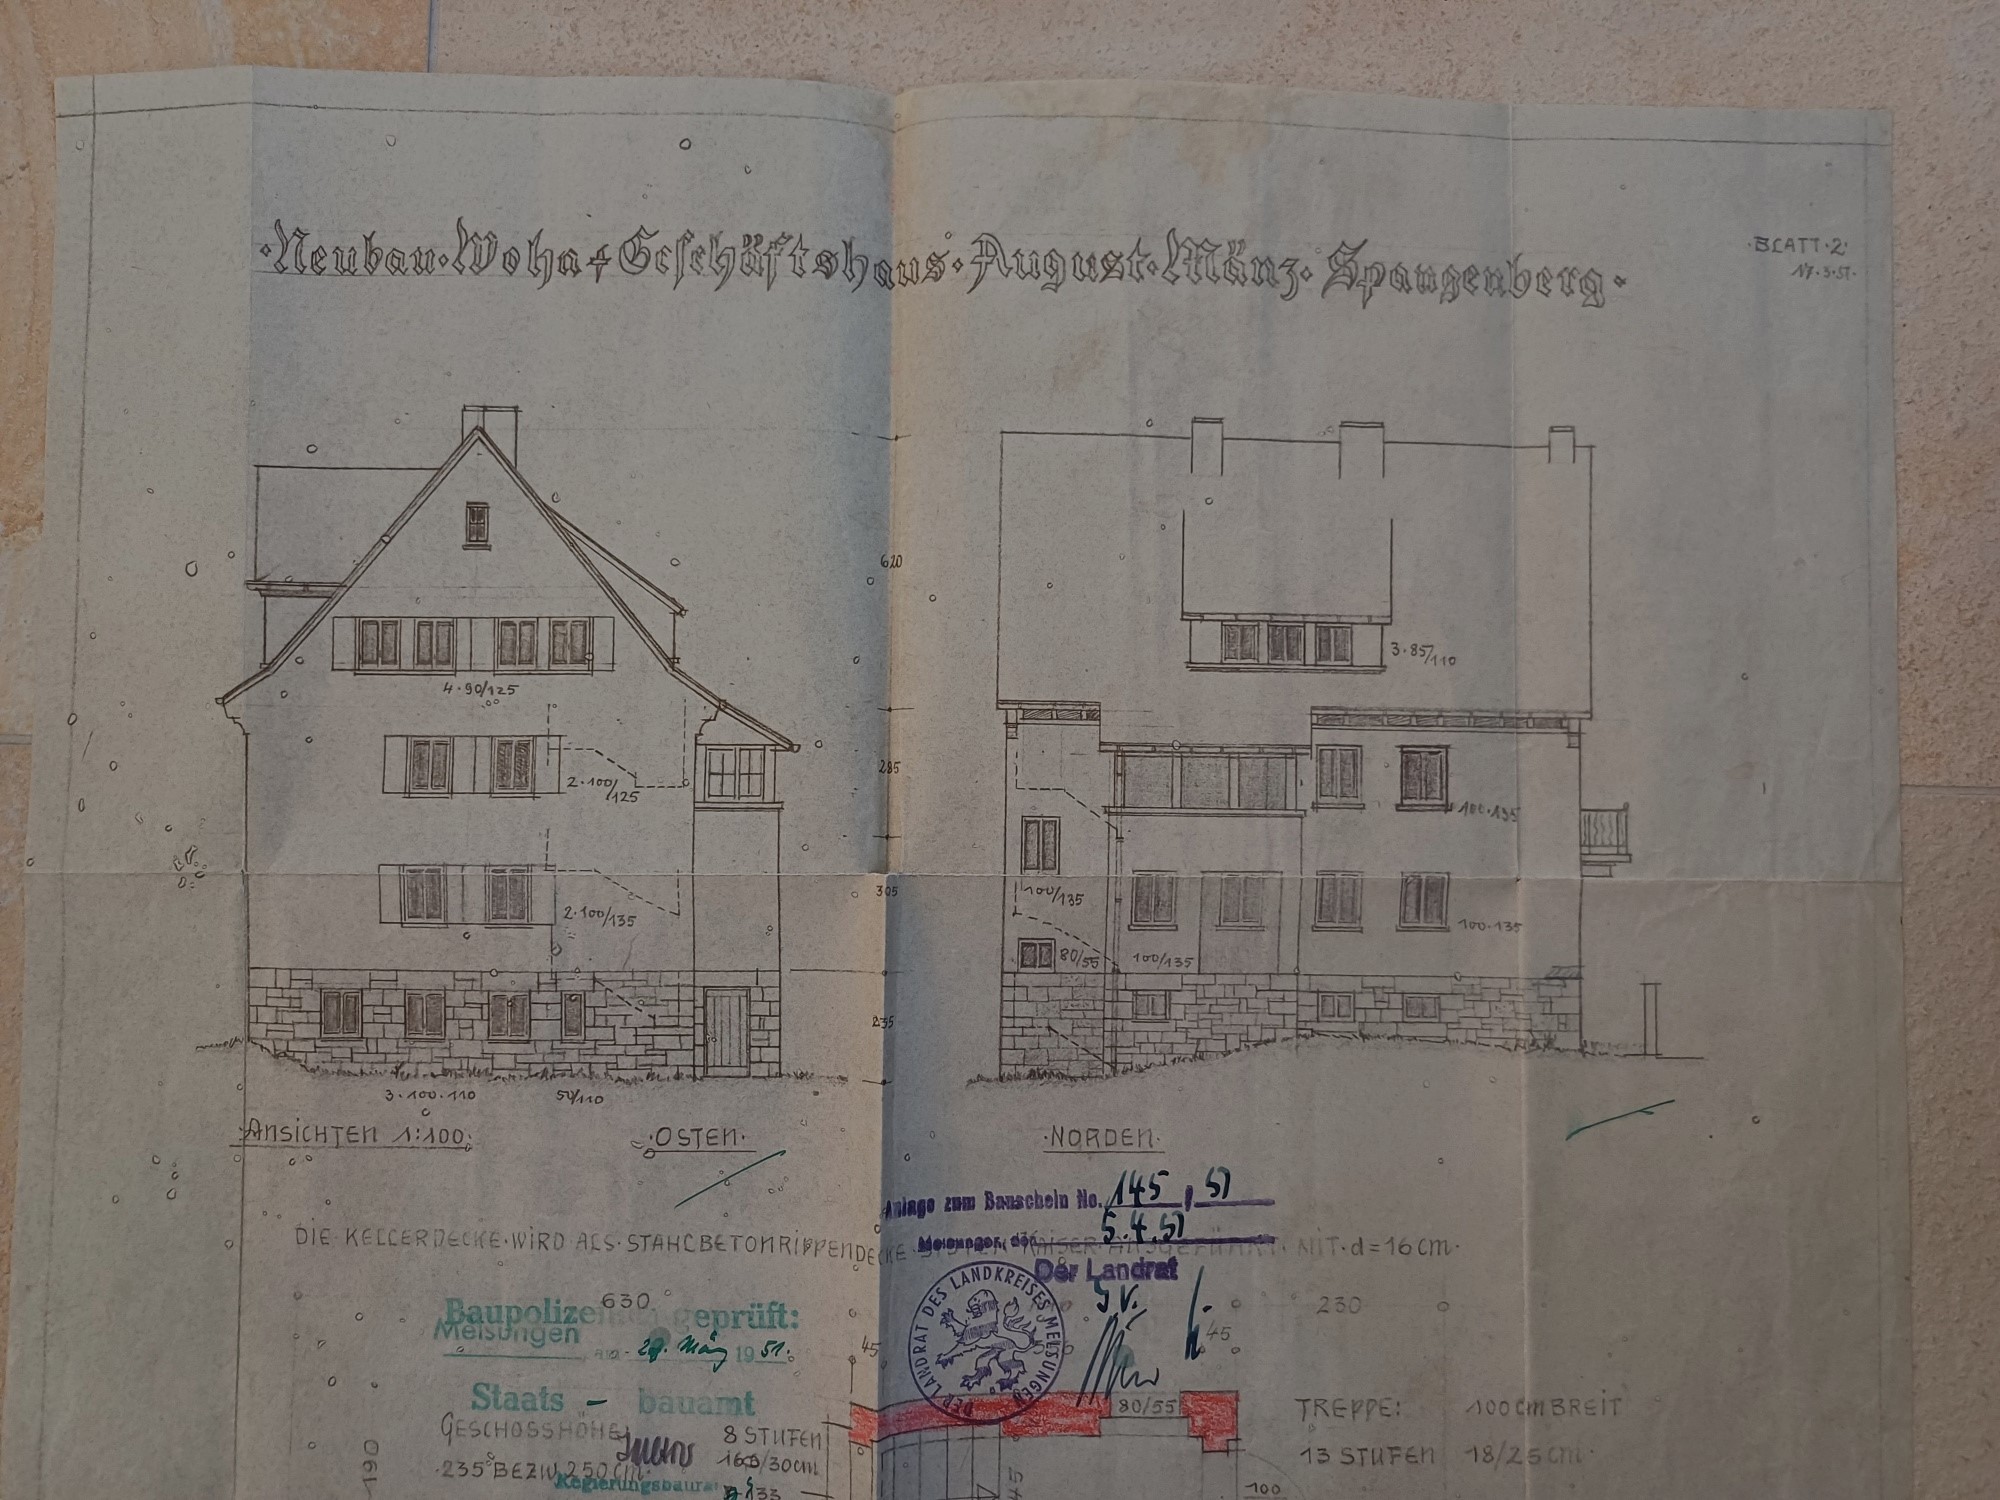 ·Neubau·Wohn + Geschäftshaus·August·Mänz·Spangenberg·
·BLATT·2·
17·3·51·
620
3·85/110
4·90/125
285
2·100/125
100·135
305
100/135
2·100/135
100·135
80/55
100/135
235
3·100·110
50/110
·ANSICHTEN 1:100·
·OSTEN·
·NORDEN·
Anlage zum Bauschein No. 145, 51
Melsungen, den 5.4.51
DIE KELLERDECKE·WIRD ALS·STAHLBETONRIPPENDECKE KAISER AUSGEFÜHRT·MIT·d=16cm·
Der Landrat
DER LANDRAT DES LANDKREISES MELSUNGEN
I.V.
630
230
Baupolizeilich geprüft:
Melsungen 19 51.
März
45
45
Staats - bauamt
80/55
TREPPE: 100cm BREIT
GESCHOSSHÖHE 8 STUFEN
13 STUFEN 18/25cm·
·235 BEZW. 250 cm· /30cm
190
45
Regierungsbaurat
133
100